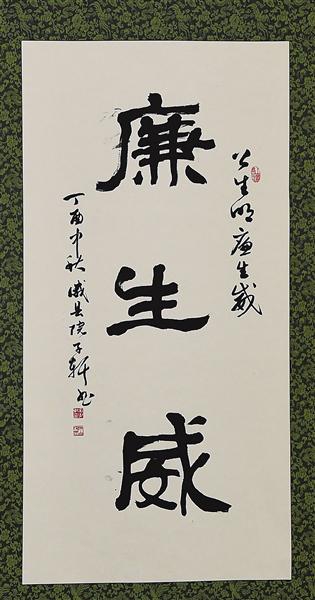 廉生威
公生明廉生威
丁酉中秋成县院子轩书